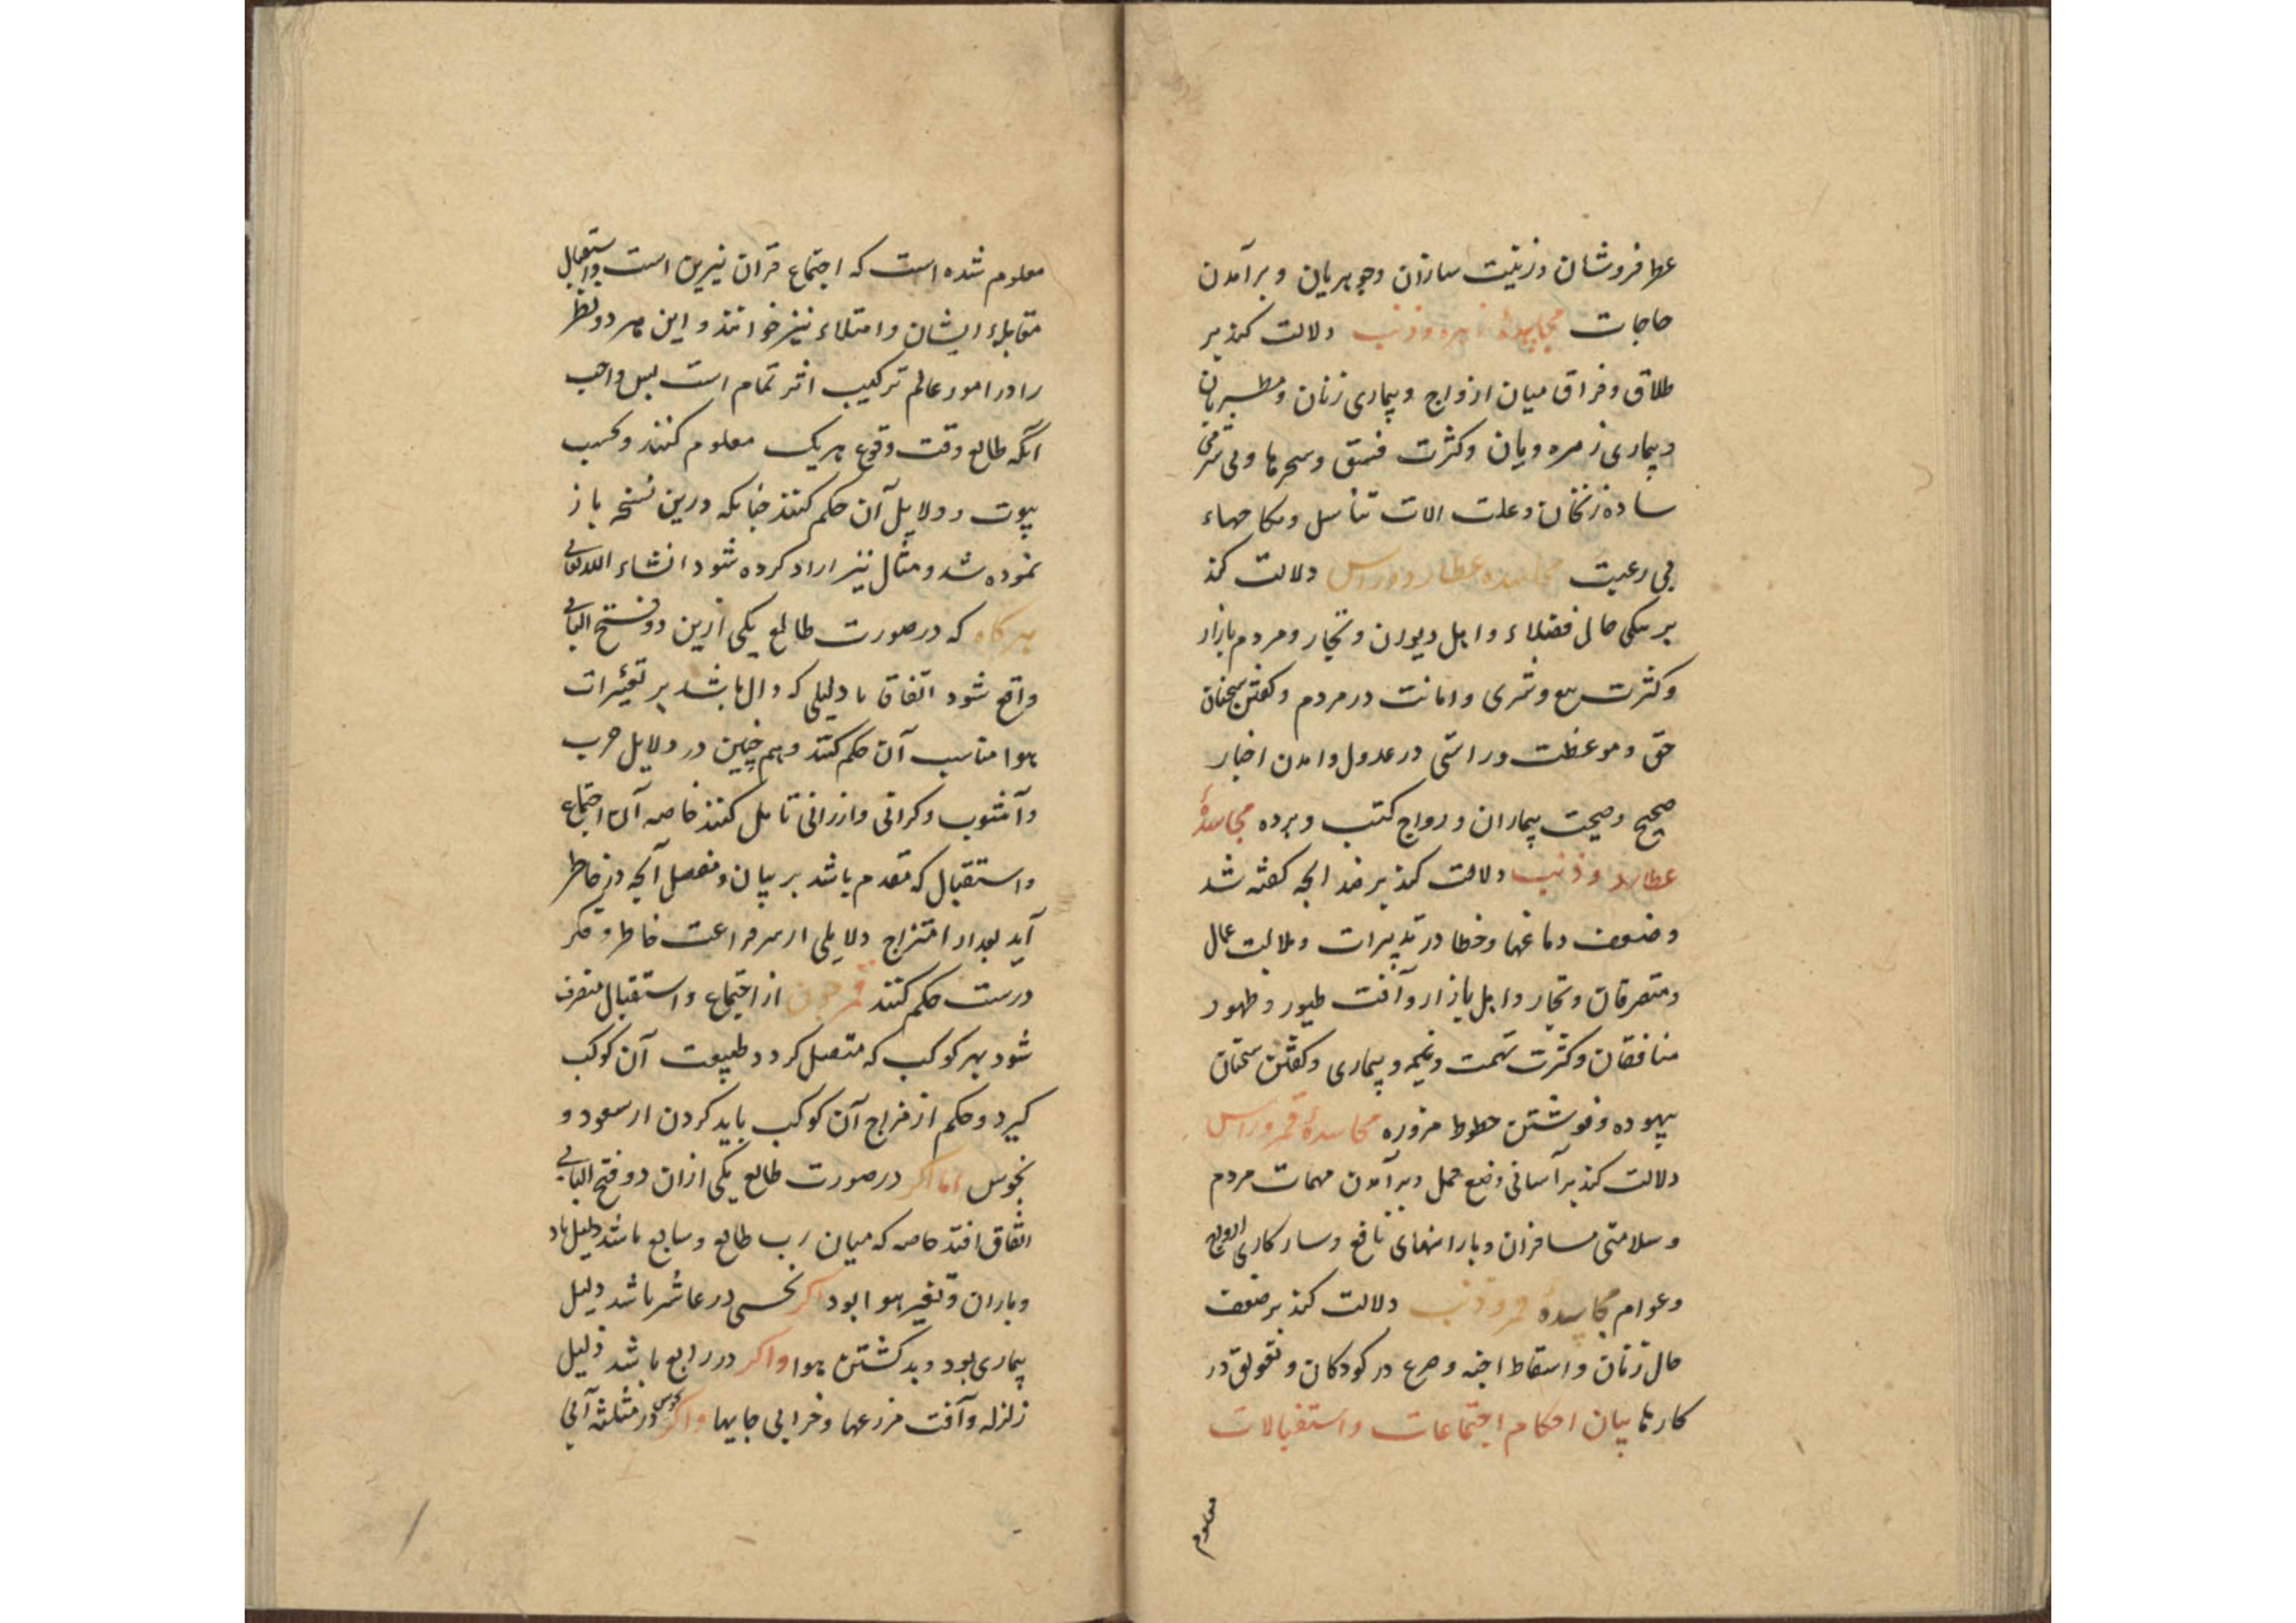 عطرفروشان و زینت سازان و جوهریان و برآمدن
حاجات مجاسدهٔ زهره و ذنب دلالت کند بر
طلاق و فراق میان ازواج و بیماری زنان و مطربان
و بیماری زهره رویان و کثرت فسق و سحرها و بی شرمی
ساده زنخان و علت الات تناسل و نکاحهاء
بی رغبت مجاسده عطارد و راس دلالت کند
بر نیکی حال فضلاء و اهل دیوان و تجار و مردم بازار
و کثرت بیع و شری و امانت در مردم و گفتن سخنان
حق و موعظت و راستی در عدول و امدن اخبار
صحیح و صحت بیماران و رواج کتب و برده مجاسدهٔ
عطارد و ذنب دلالت کند بر ضد انچه گفته شد
و ضعف دماغها و خطا در تدبیرات و ملالت عمال
و متصرفان و تجار و اهل بازار و آفت طیور و ظهور
منافقان و کثرت تهمت و غیمه و بیماری و گفتن سخنان
بیهوده و نوشتن خطوط مزوره مجاسدهٔ قمر و راس
دلالت کند بر آسانی وضع حمل و برآمدن مهمات مردم
و سلامتی مسافران و بارانهای نافع و سازکاری ازواج
و عوام مجاسدهٔ قمر و ذنب دلالت کند بر ضعف
حال زنان و اسقاط اجنه و صرع در کودکان و تعویق در
کارها بیان احکام اجتماعات و استقبالات
معلوم
معلوم شده است که اجتماع قران نیرین است و استقبال
مقابلهٔ ایشان و امتلاء نیز خوانند و این هر دو نظر
را در امور عالم ترکیب اثر تمام است پس واجب
آنکه طالع وقت وقوع هریک معلوم کنند و بحسب
بیوت و دلایل آن حکم کنند چنانکه درین نسخه باز
نموده شد و مثال نیز ایراد کرده شود انشاء الله تعالی
هرکاه که در صورت طالع یکی ازین دو فتح الباب
واقع شود اتفاقا یا دلیلی که دال باشد بر تغیّرات
هوا مناسب آن حکم کنند و هم چنین در دلایل حرب
و آشوب و کرانی و ارزانی تامل کنند خاصه آن اجتماع
و استقبال که مقدم باشد بر بیان و مفصل آنچه در خاطر
آید بعد از امتزاج دلایلی از سر فراغت خاطر و فکر
درست حکم کنند قمر چون از اجتماع و استقبال منصرف
شود بهر کوکب که متصل کردد طبیعت آن کوکب
کیرد و حکم از مزاج آن کوکب باید کردن از سعود و
نحوس اما اکر در صورت طالع یکی ازان دو فتح الباب
اتفاق افتد خاصه که میان رب طالع و سابع باشد دلیل باد
و باران و تغیر هوا بود اکر نحسی در عاشر باشد دلیل
بیماری بود و بد کشتن هوا و اکر در رابع باشد دلیل
زلزله و آفت مزرعها و خرابی جایها و اکر نحوس در مثلثه آبی